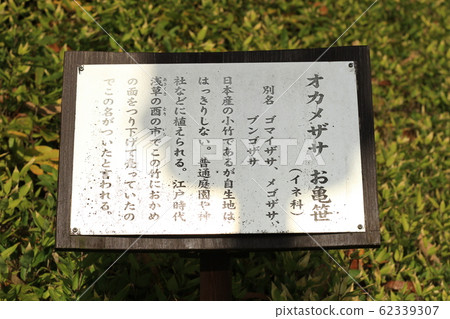 オカメザサ　お亀笹
（イネ科）
別名　ゴマイザサ、メゴザサ、
ブンゴザサ
日本産の小竹であるが自生地は
はっきりしない。普通庭園や神
社などに植えられる。江戸時代
浅草の酉の市でこの竹におかめ
の面をつり下げて売っていたの
でこの名がついたと言われる。
123RF
62339307